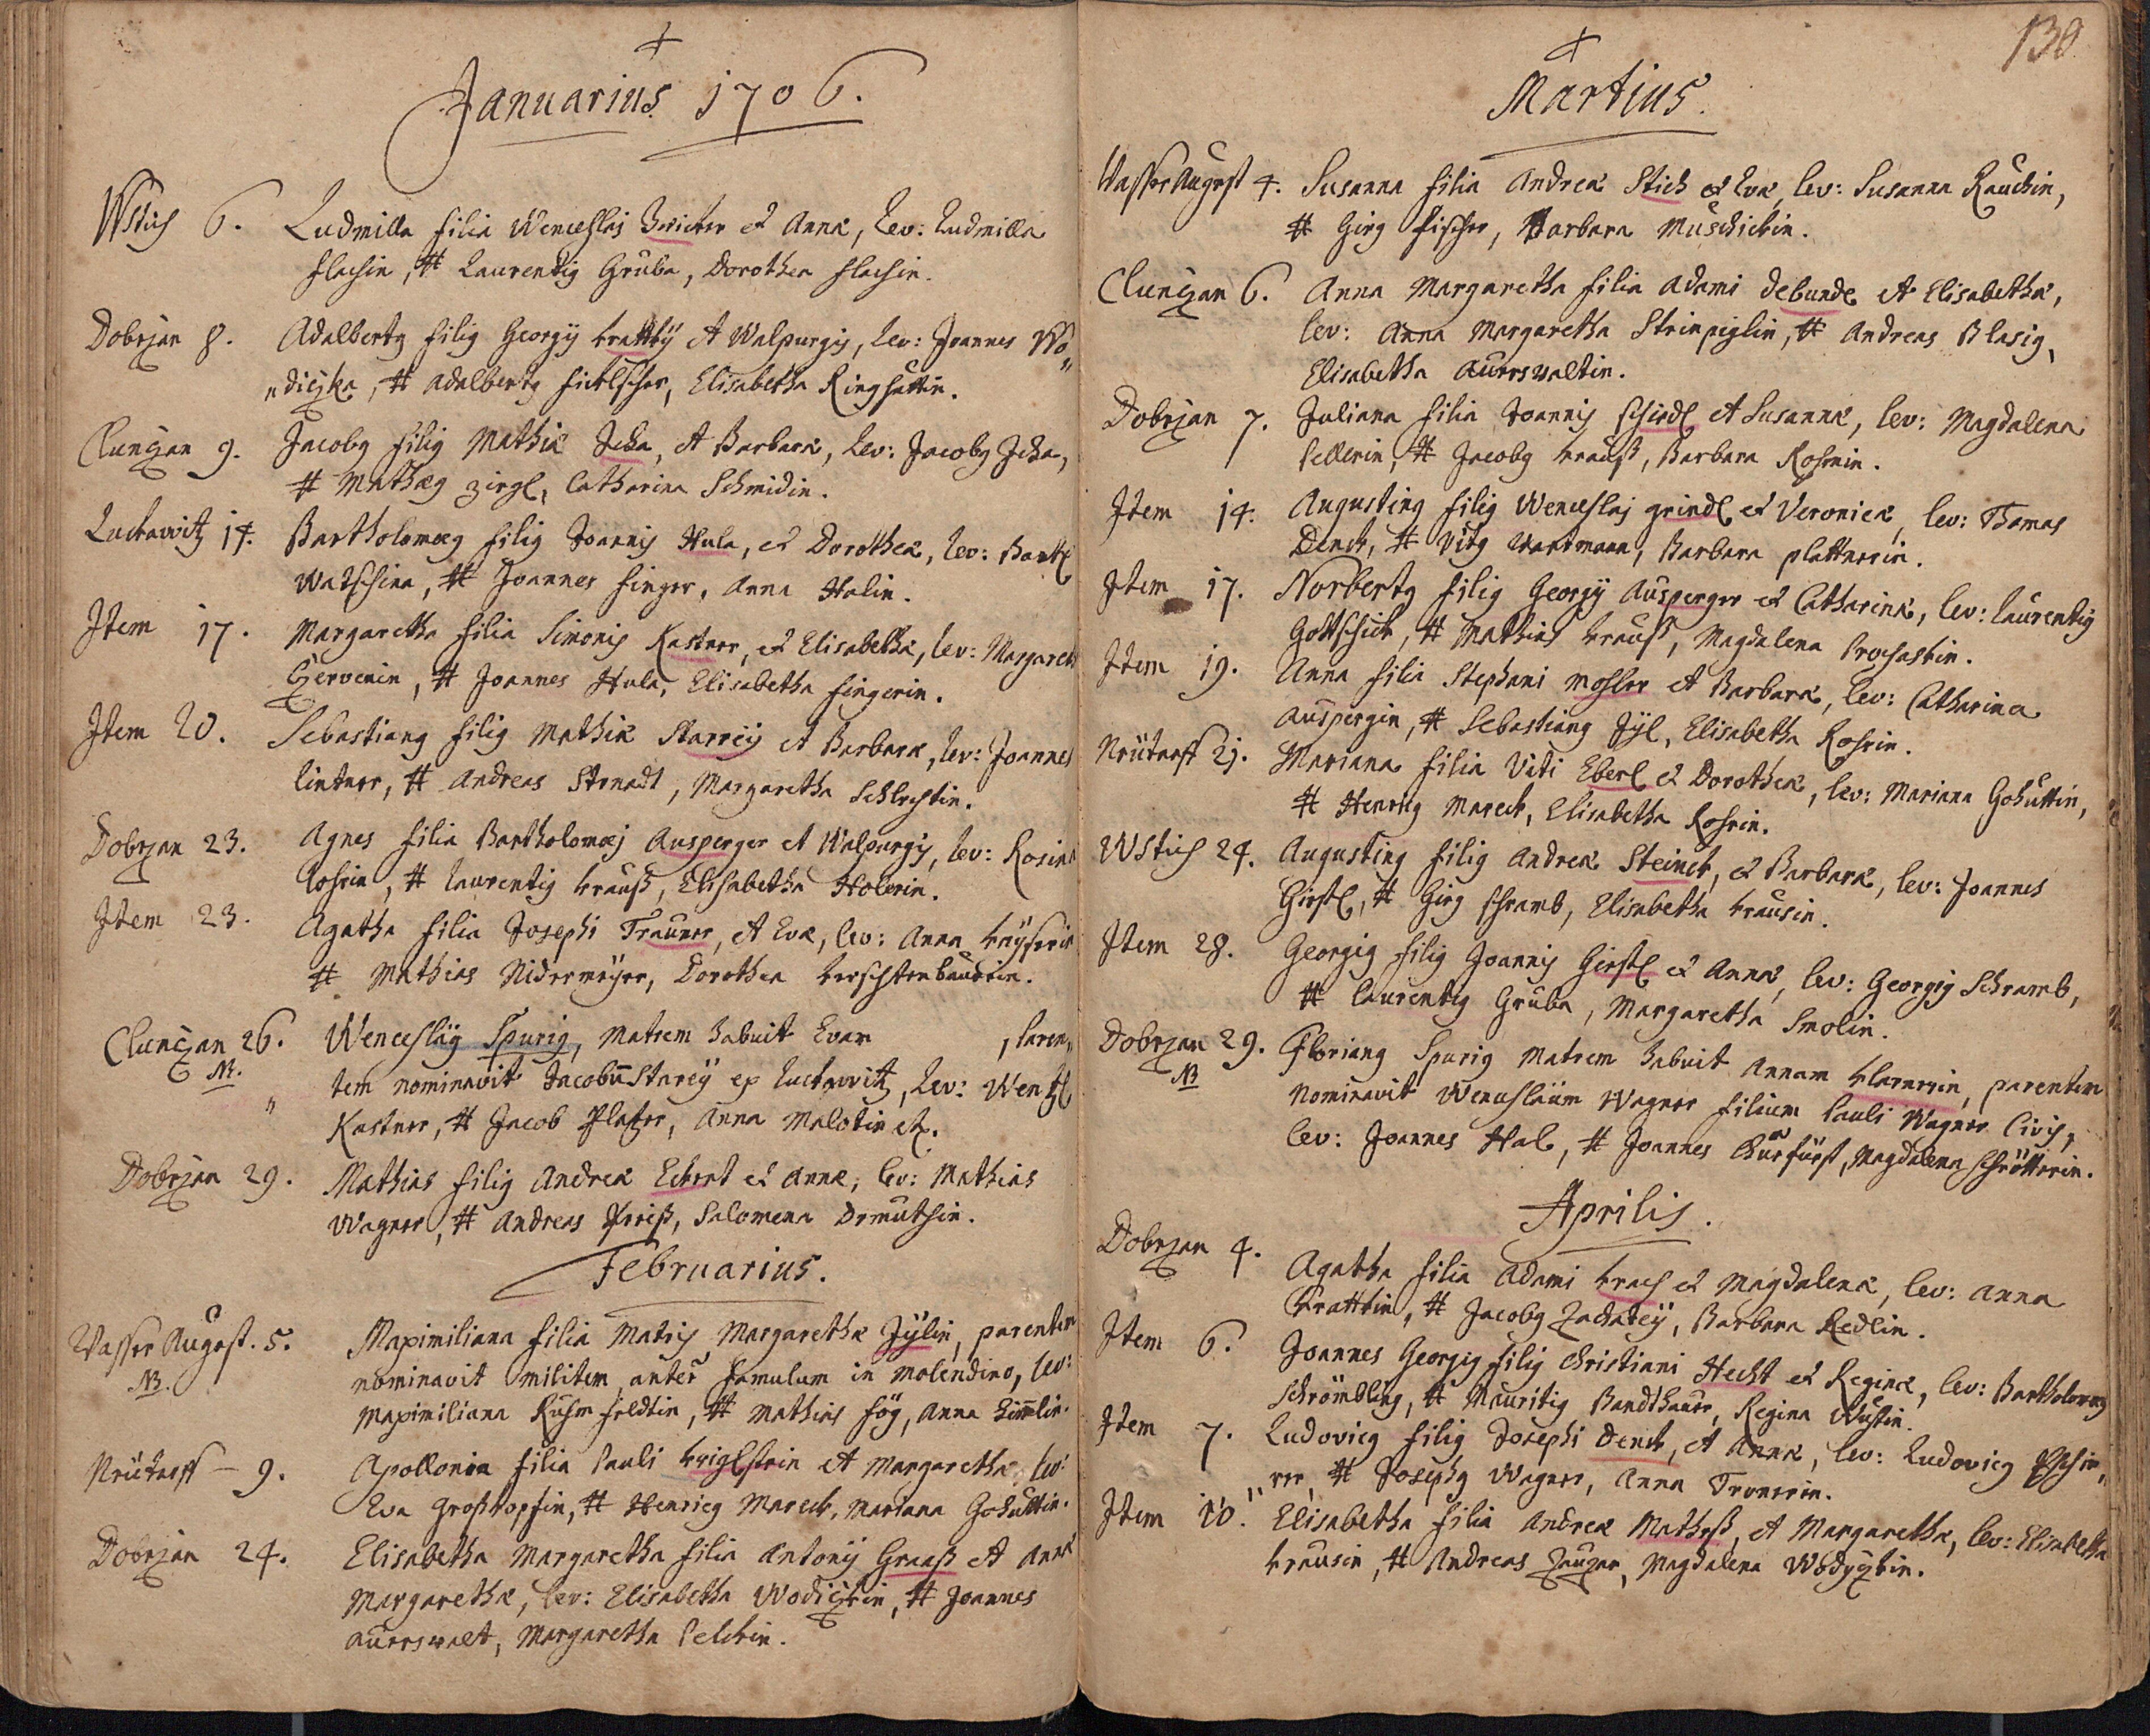 Januarius 1706.
Wstich 6. Ludmilla filia Wenceslai et Anna, Lev: Ludmilla
flachin, # Laurentig Gruba, Dorothea flachin.
Dobrzan 8. Adalbertg filig Georgij krattky et Walpurgis, Lev: Joannes Wo=
=diczka, # Adalbertg Elisabetha
Chunczan 9. Jacobg filig Mathiæ Jcha, et Barbaræ, Lev: Jacobg Jcha,
# Mathæg zirgl, Catharina Schmidin.
Luckawitz 14. Bartholomæg filig Joannis Hula, et Dorotheæ, Lev: Bartl
Watschina, # Joannes finger, Anna Halin.
Item 17. Margaretha filia Simonis Kastner, et Elisabethæ, Lev:
Czervenin, # Joannes Hula, Elisabetha fingerin.
Item 20. Sebastiang filig Mathiæ Starrey et Barbaræ, lev: Joannes
lintner, # Andreas Strnadt, Margaretha Schlechtin.
Dobrzan 23. Agnes filia Bartholomæj Ausperger et Walpurgis, lev: Rosina
Rohrin, # Laurentig krauß, Elisabetha Holerin.
Item 23. Agatha filia Josephi Trauner, et Evæ, lev: Anna
# Mathias Nidermeyer, Dorothea
Chunczan 26. Wenceslag Spurig, Matrem habuit Evam , Paren=
NB. tem nominavit Jacobū Starey ex Luckawitz, Lev: Wentzl
Kastner, # Jacob Platzer, Anna Malotin etc.
Dobrzan 29. Mathias filig Andreæ Eckert et Annæ, lev: Mathias
Wagner, # Andreas Preiß, Salomena Demuthin.
Februarius.
Wasser August. 5. Maximiliana filia Matris Margarethæ Zÿlin, parentem
NB. nominavit militem anteā famulum in molendino, lev:
Maximiliana # Mathias Anna
Neüdorff – 9. Apollonia filia Pauli kriglstein et Margarethæ, lev:
Eva Großkopfin, # Henricg Mareck, Mariana Gokuttin.
Dobrzan 24. Elisabetha Margaretha filia Antonij Graaß et Annæ
Margarethæ, lev: Elisabetha Wodiczkin, # Joannes
Auerswalt, Margaretha Pelckin.
130
Martius.
Wasser August 4. Susanna filia Andreæ Stich et Evæ, lev: Susanna Rauchin,
# Girg fischer, Barbara Muschickin.
Chunczan 6. Anna Margaretha filia Adami debunde et Elisabethæ,
lev: Anna Margaretha # Andreas Blasig,
Elisabetha Auerswaltin.
Dobrzan 7. Juliana filia Joannis Schiedl et Susannæ, lev: Magdalena
Pellerin, # Jacobg krauß, Barbara
Item 14. Augusting filig Wenceslaj grindl et Veronicæ, lev: Thamas
Denck, # Vitg Wartmann, Barbara plattnerin.
Item 17. Norbertg filig Georgÿ Ausperger et Catharinæ, lev: Laurentig
Gottschick, # Mathias krauß, Magdalena Prochaskin.
Item 19. Anna filia Stephani Moshler et Barbaræ, lev: Catharina
Auspergin, # Sebastiang Zÿl, Elisabetha Rohrin.
Neüdorff 21. Mariana filia Viti Eberl et Dorotheæ, lev: Mariana Gokuttin,
# Henricg Mareck, Elisabetha Rohrin.
Wstich 24. Augusting filig Andreæ Steinck, et Barbaræ, lev: Joannes
Girstl, # Girg Schramb, Elisabetha krausin.
Item 28. Georgig filig Joannis Girstl et Annæ, lev: Georgig Schramb,
# Laurentig Gruba, Margaretha Smolin.
Dobrzan 29. Floriang Spurig Matrem habuit Annam klarnerin, parentem
NB nominavit Wenceslaum Wagner filium Pauli Wagner Civis,
lev: Joannes Hal, # Joannes Churfürst, Magdalena Schrötterin.
Aprilis.
Dobrzan 4. Agatha filia Adami krach et Magdalenæ, lev: Anna
krattkin, # Jacobg Barbara Redlin.
Item 6. Joannes Georgig filig Christiani Hecht et Reginæ, lev: Bartholomæg
Schrömbling, # Mauritig Bandthauer, Regina
Item 7. Ludovicg filig Josephi Denck, et Annæ, lev: Ludovicg
rer, # Josephg Wagner, Anna Tronerin.
Item 10. Elisabetha filia Andreæ Matheß, et Margarethæ, lev: Elisabetha
krausin, # Andreas Zauger, Magdalena Wodyczkin.